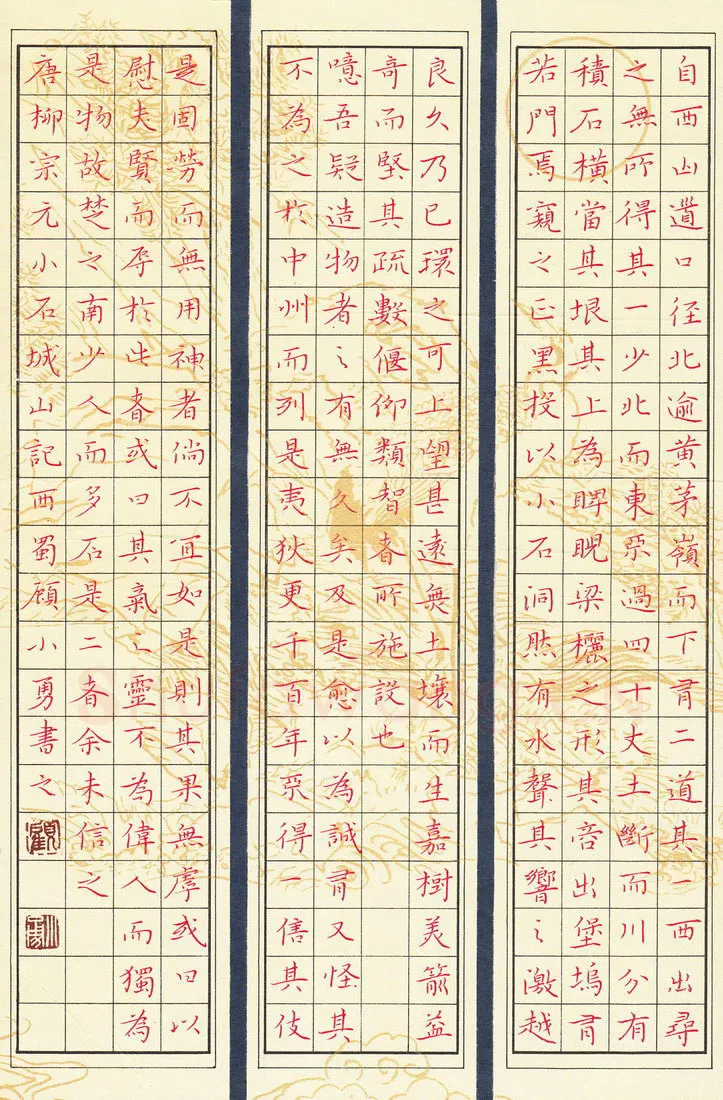 自西山道口径北逾黄茅嶺而下有二道其一西出尋
之無所得其一少北而東不過四十丈土斷而川分有
積石橫當其垠其上為睥睨梁欐之形其旁出堡塢有
若門焉窺之正黑投以小石洞然有水聲其響之激越
良久乃已環之可上望甚遠無土壤而生嘉樹美箭益
奇而堅其疏數偃仰類智者所施設也
噫吾疑造物者之有無久矣及是愈以為誠有又怪其
不為之於中州而列是夷狄更千百年不得一售其伎
是固勞而無用神者倘不宜如是則其果無虖或曰以
慰夫賢而辱於此者或曰其氣之靈不為偉人而獨為
是物故楚之南少人而多石是二者余未信之
唐柳宗元小石城山記西蜀顾小勇書之
顧
小勇